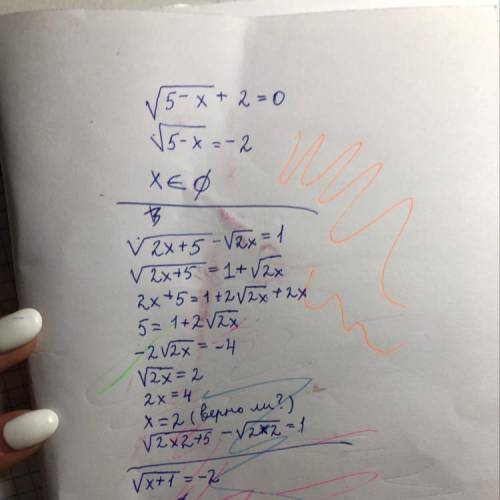 √5-x + 2 = 0
√5-x = -2
x ∈ ∅
√2x+5 - √2x = 1
√2x+5 = 1+√2x
2x+5 = 1+2√2x+2x
5 = 1+2√2x
-2√2x = -4
√2x = 2
2x = 4
x = 2 (верно ли?)
√2x2+5 - √2x2 = 1
√x+1 = -2